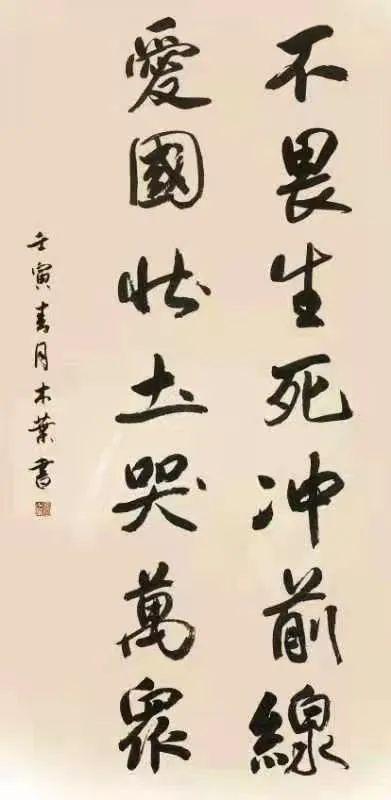 不畏生死冲前線
愛國状土哭萬眾
壬寅春月木葉書